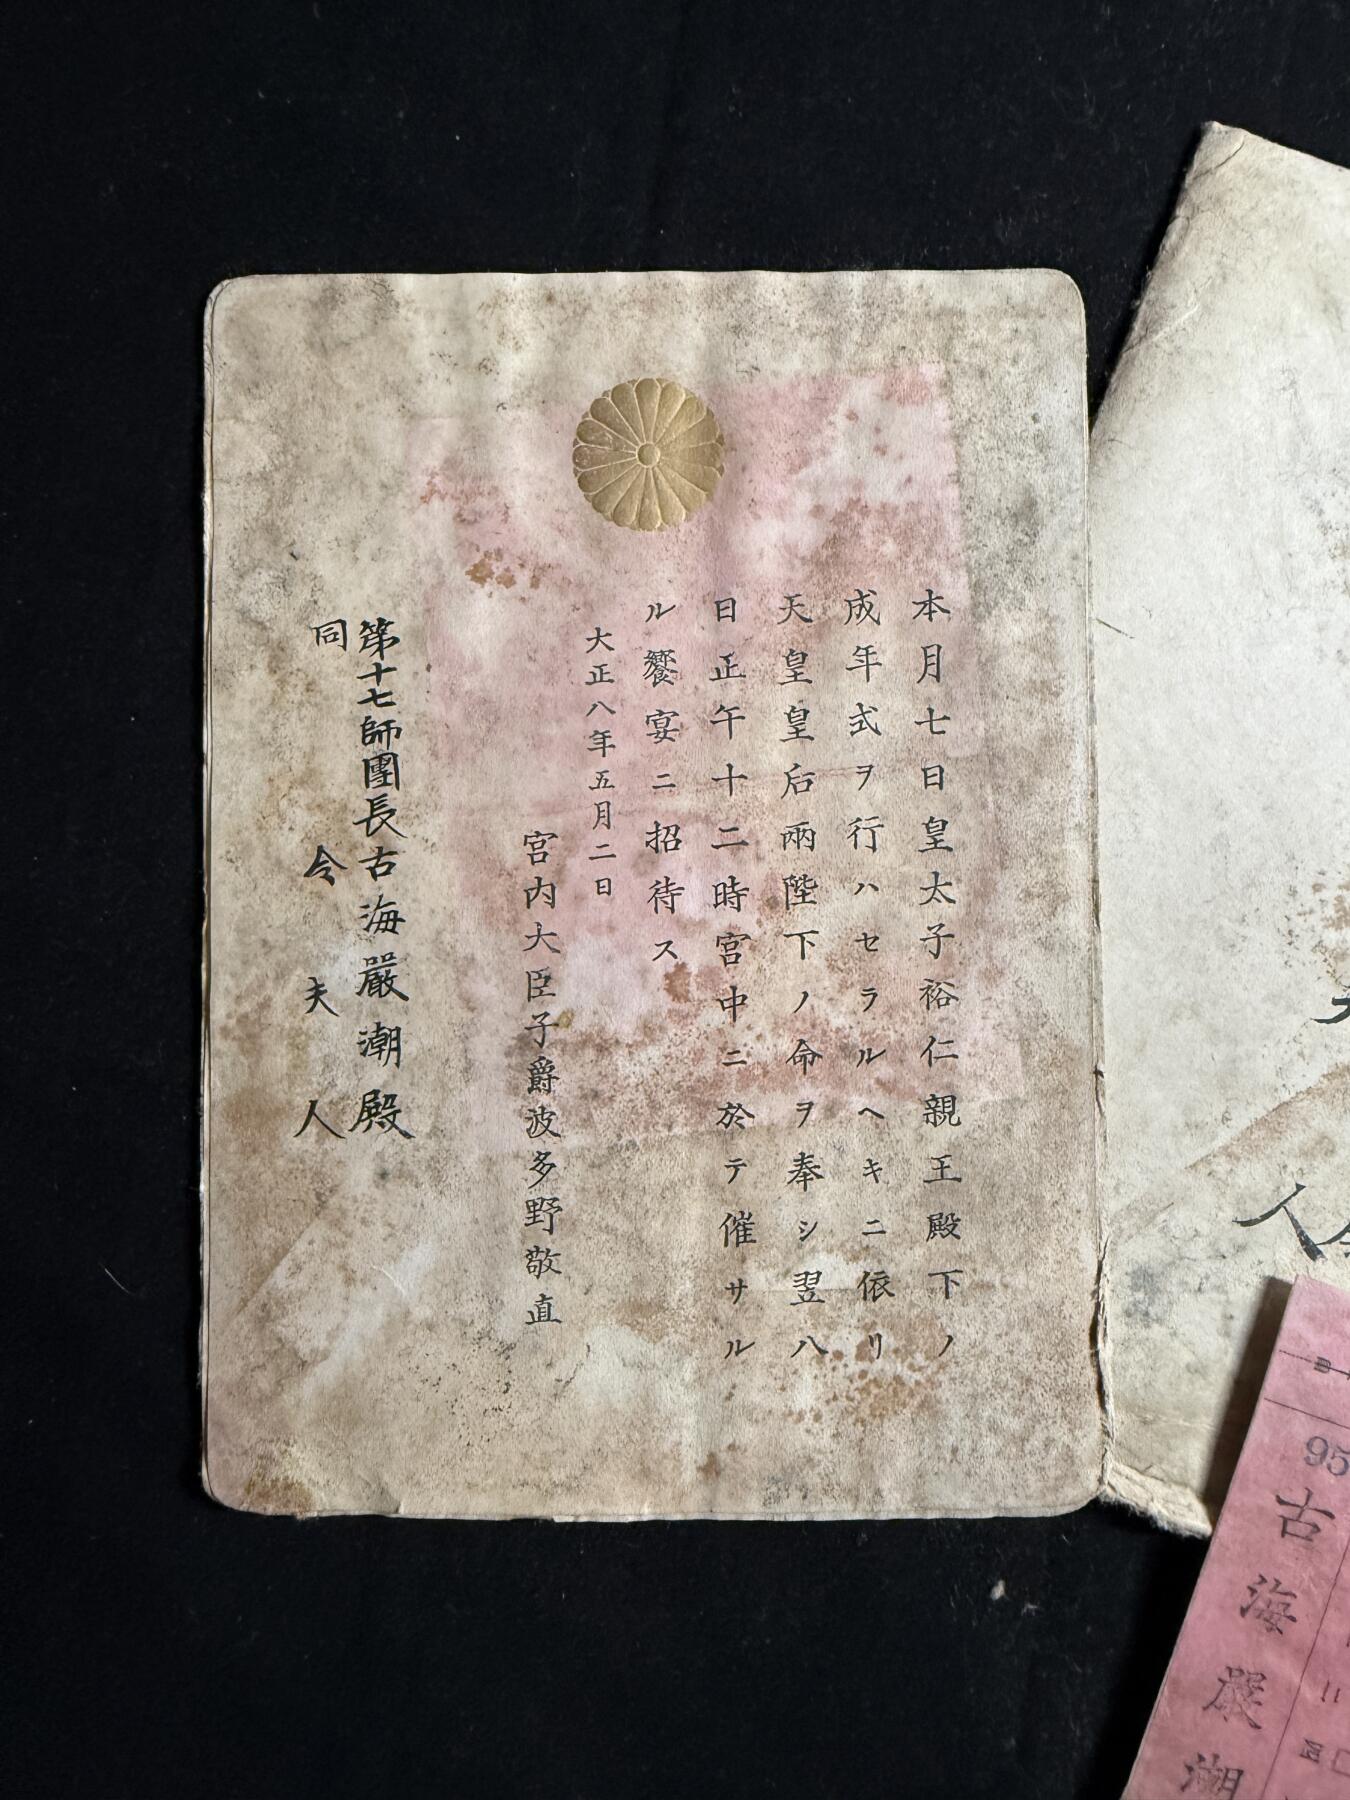 本月七日皇太子裕仁親王殿下ノ
成年式ヲ行ハセラルヘキニ依リ
天皇皇后兩陛下ノ命ヲ奉シ翌八
日正午十二時宮中ニ於テ催サル
ル饗宴ニ招待ス
大正八年五月二日
宮内大臣子爵波多野敬直
第十七師團長古海嚴潮殿
同令夫人
人
95
古海嚴潮